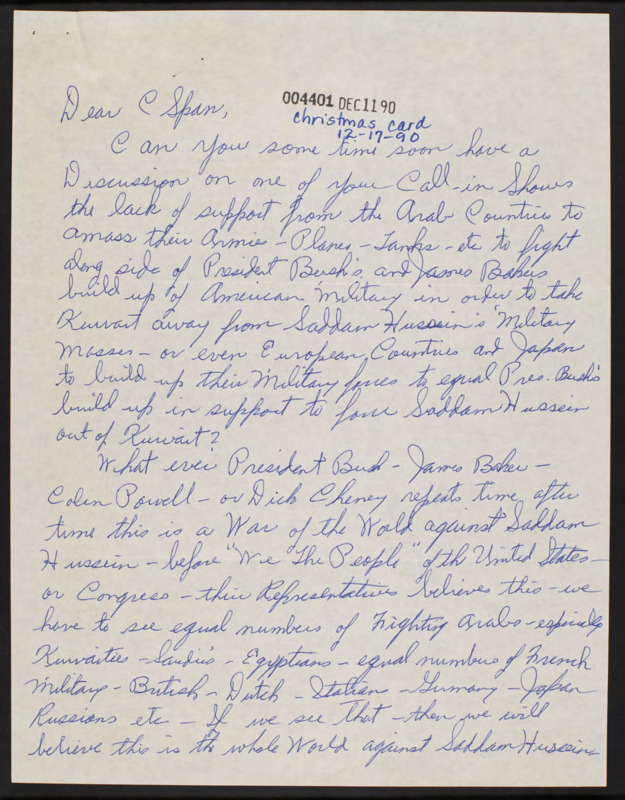 004401 DEC1190
christmas card
12-17-90
Dear C Span,
Can you some time soon have a
Discussion on one of your Call-in Shows
the lack of support from the Arab Countries to
amass their Armies - Planes - Tanks - etc to fight
along side of President Bush's and James Bakers
build up of American Military in order to take
Kuwait away from Saddam Hussein's Military
Masses - or even European Countries and Japan
to build up their Military forces to equal Pres. Bush's
build up in support to force Saddam Hussein
out of Kuwait?
What ever President Bush - James Baker -
Colin Powell - or Dick Cheney repeats time after
time this is a War of the World against Saddam
Hussein - before "We The People" of the United States -
or Congress - their Representatives believes this - we
have to see equal numbers of Fighting Arabs - especially
Kuwaities - Saudi's - Egyptians - equal numbers of French
Military - British - Dutch - Italians - Germany - Japan
Russions etc - If we see that - then we will
believe this is the whole World against Saddam Hussein